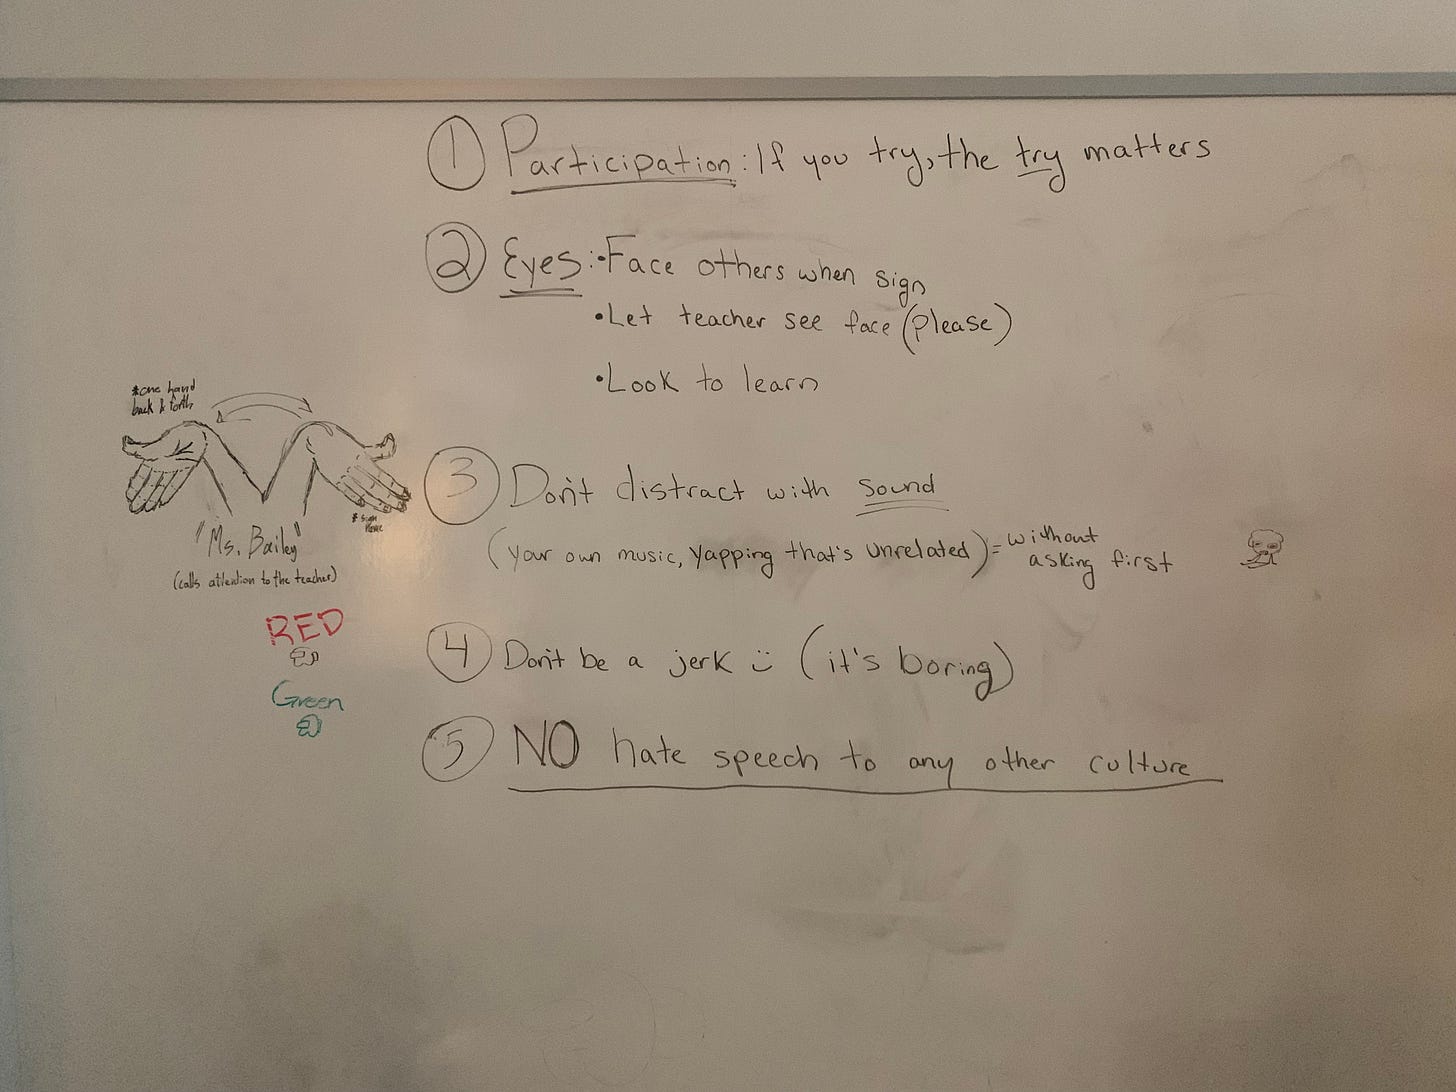 ① Participation: If you try, the try matters
② Eyes: • Face others when sign
• Let teacher see face (please)
• Look to learn
③ Don't distract with sound
(your own music, yapping that's unrelated) = without
asking first
④ Don't be a jerk :) (it's boring)
⑤ NO hate speech to any other culture
*one hand
back & forth
* sign
name
"Ms. Bailey"
(calls attention to the teacher)
RED
Green